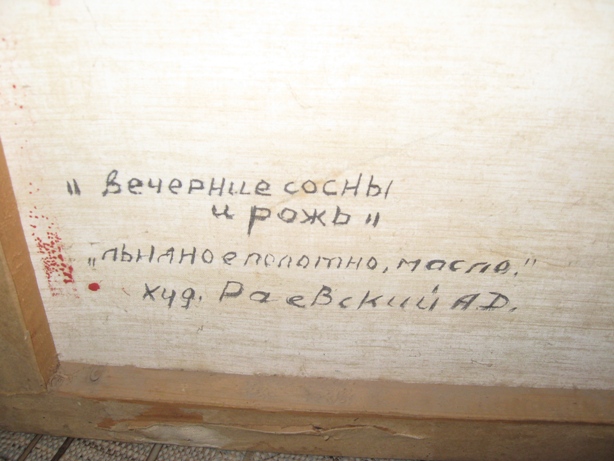 "вечерние сосны
и рожь"
"льняное полотно, масло."
худ. Раевский А.Д.